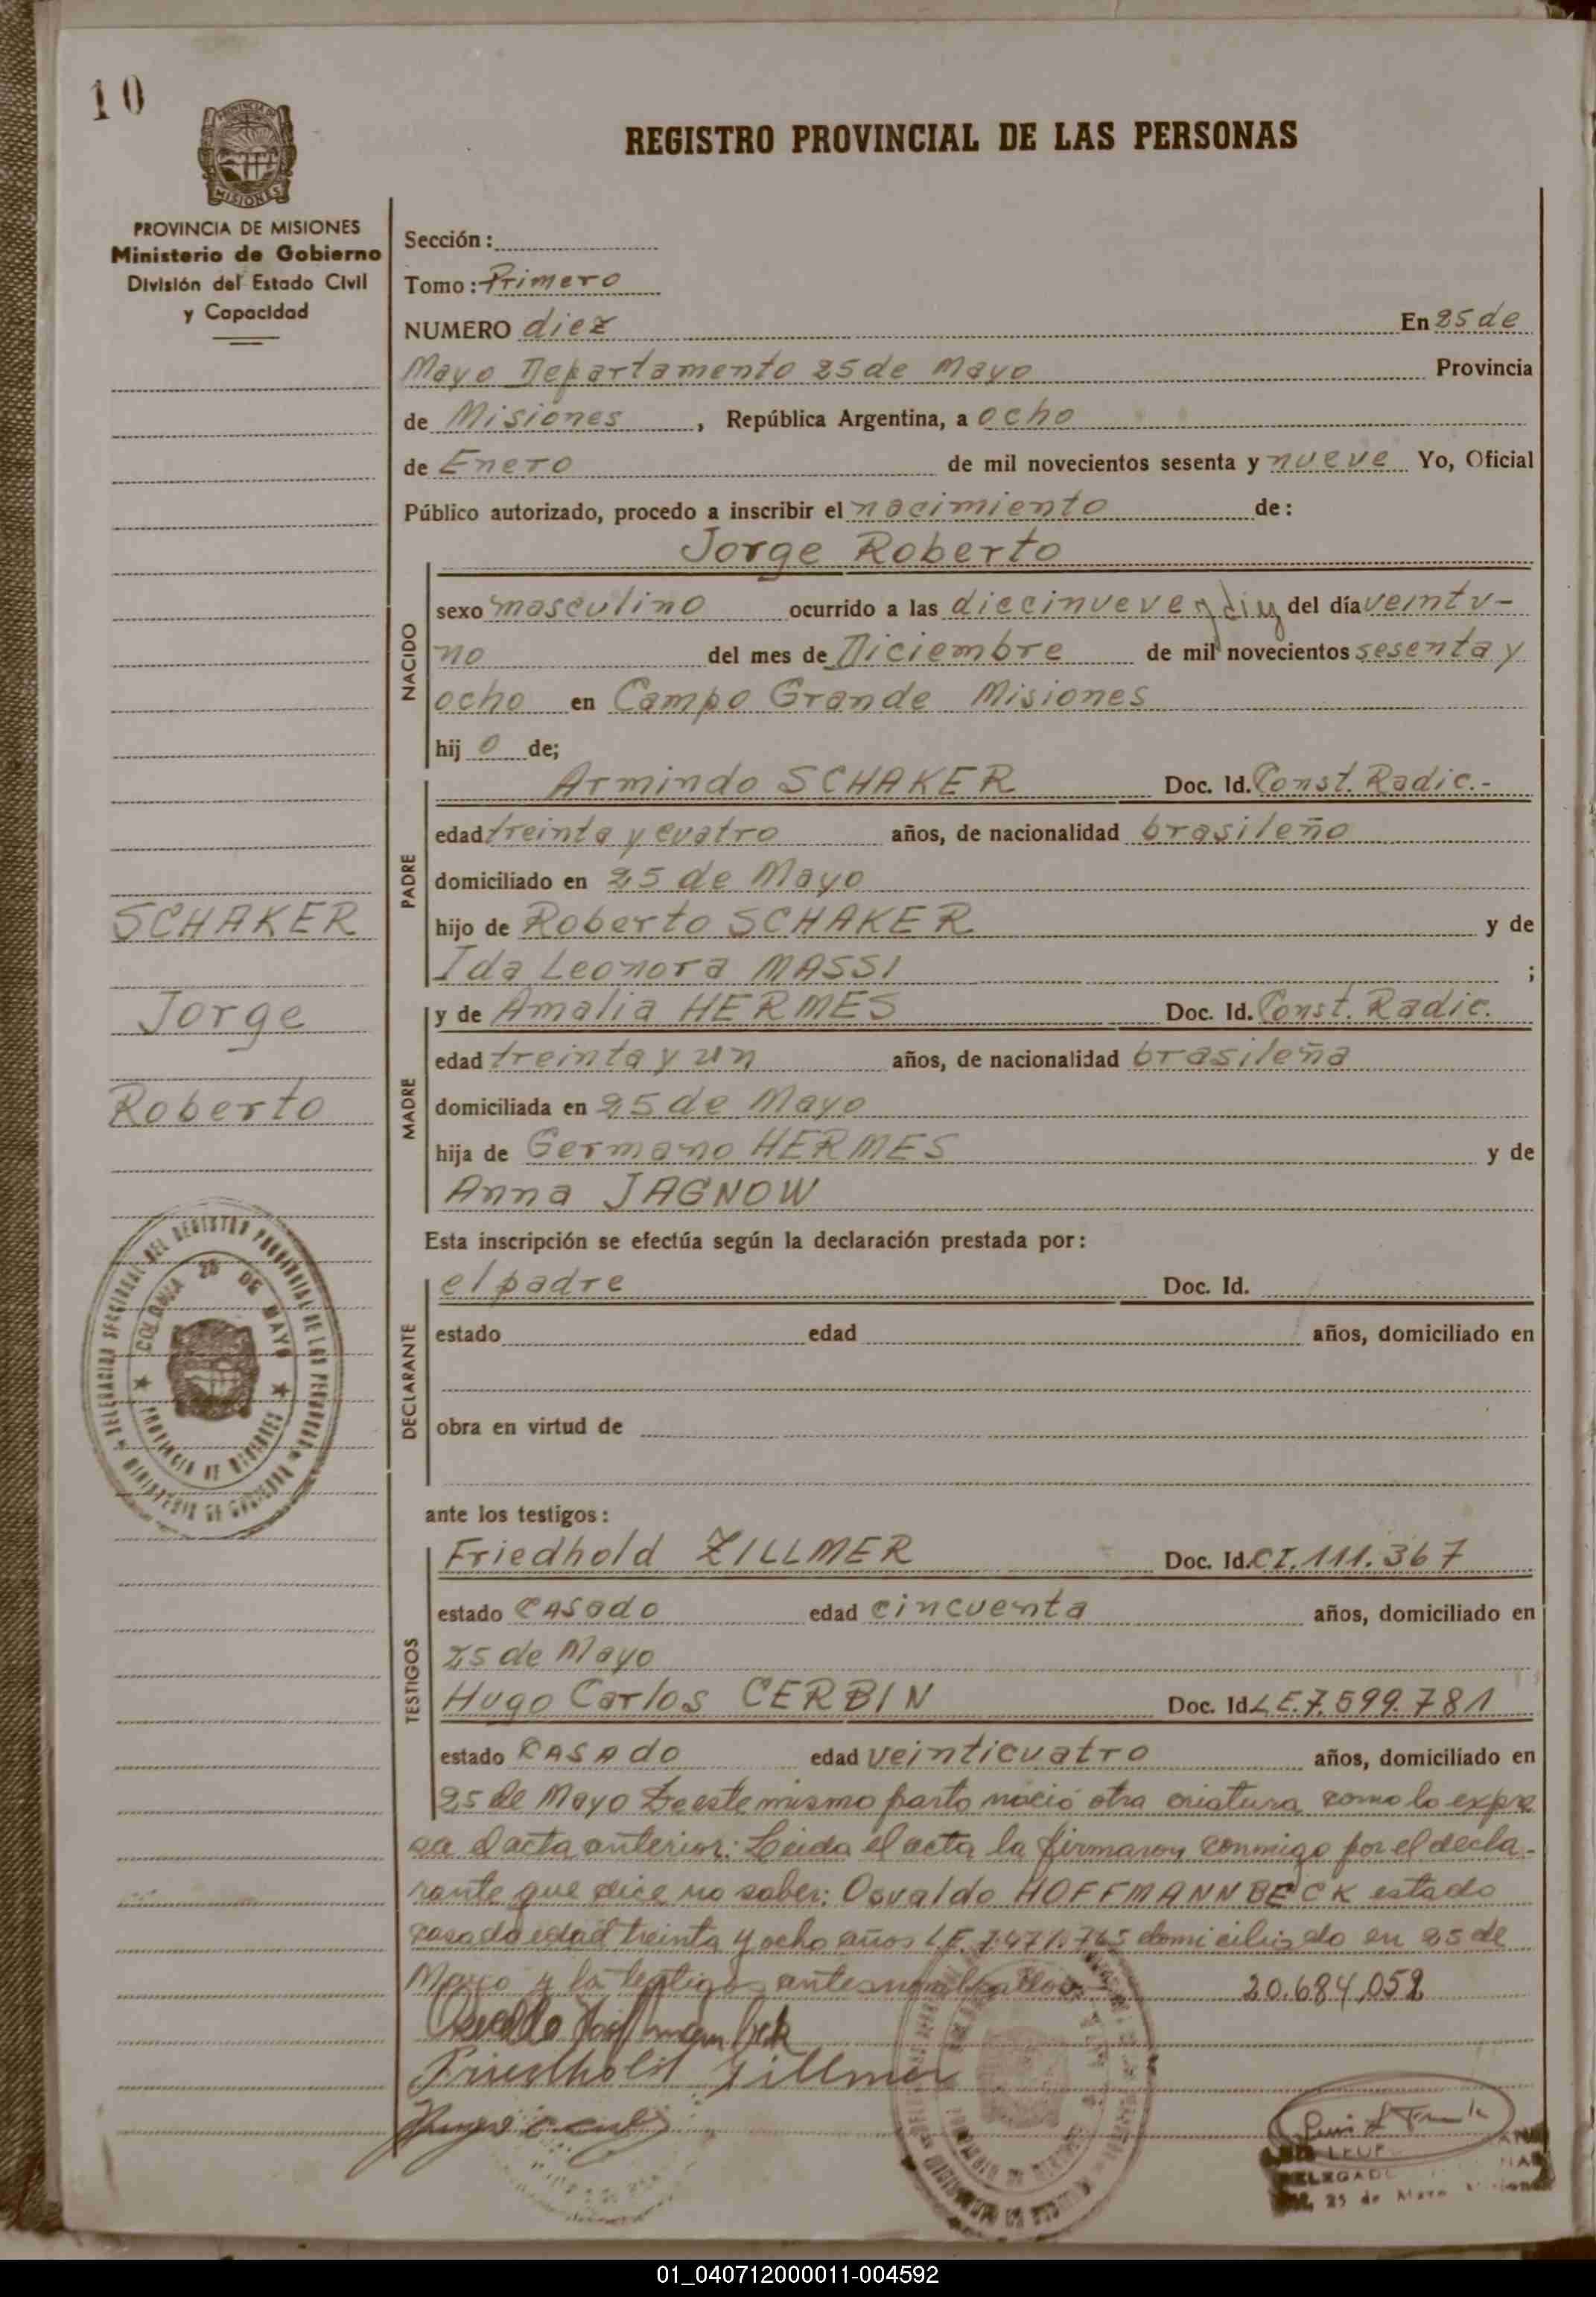 10
PROVINCIA DE MISIONES
Ministerio de Gobierno
División del Estado Civil
y Capacidad
REGISTRO PROVINCIAL DE LAS PERSONAS
Sección:
Tomo: Primero
NUMERO diez En 25 de
Mayo Departamento 25 de Mayo Provincia
de Misiones, República Argentina, a ocho
de Enero de mil novecientos sesenta y nueve Yo, Oficial
Público autorizado, procedo a inscribir el nacimiento de:
Jorge Roberto
NACIDO
sexo masculino ocurrido a las diecinueve y diez del día veintu-
no del mes de Diciembre de mil novecientos sesenta y
ocho en Campo Grande Misiones
hij o de;
PADRE
Armindo SCHAKER Doc. Id. Const. Radic.-
edad treinta y cuatro años, de nacionalidad brasileño
domiciliado en 25 de Mayo
hijo de Roberto SCHAKER y de
Ida Leonora MASSI ;
MADRE
y de Amalia HERMES Doc. Id. Const. Radic.
edad treinta y un años, de nacionalidad brasileña
domiciliada en 25 de Mayo
hija de Germano HERMES y de
Anna JAGNOW
SCHAKER
Jorge
Roberto
Esta inscripción se efectúa según la declaración prestada por:
DECLARANTE
el padre Doc. Id.
estado edad años, domiciliado en
obra en virtud de
DELEGACION SECCIONAL DEL REGISTRO PROVINCIAL DE LAS PERSONAS
MINISTERIO DE GOBIERNO
COLONIA 25 DE MAYO
PROVINCIA DE MISIONES
ante los testigos:
TESTIGOS
Friedhold ZILLMER Doc. Id. CI. 111.367
estado CASado edad cincuenta años, domiciliado en
25 de Mayo
Hugo Carlos CERBIN Doc. Id. LE. 7.599.781
estado CASAdo edad veinticuatro años, domiciliado en
25 de Mayo De este mismo parto nació otra criatura como lo expre
sa el acta anterior. Leida el acta la firmaron conmigo por el decla-
rante que dice no saber: Osvaldo HOFFMANNBECK estado
casado edad treinta y ocho años LE. 7.471.765 domiciliado en 25 de
Mayo y los testigos antes nombrados 20.684.052
Osvaldo Hoffmannbeck
Friedhold Zillmer
25 de Mayo
01_040712000011-004592